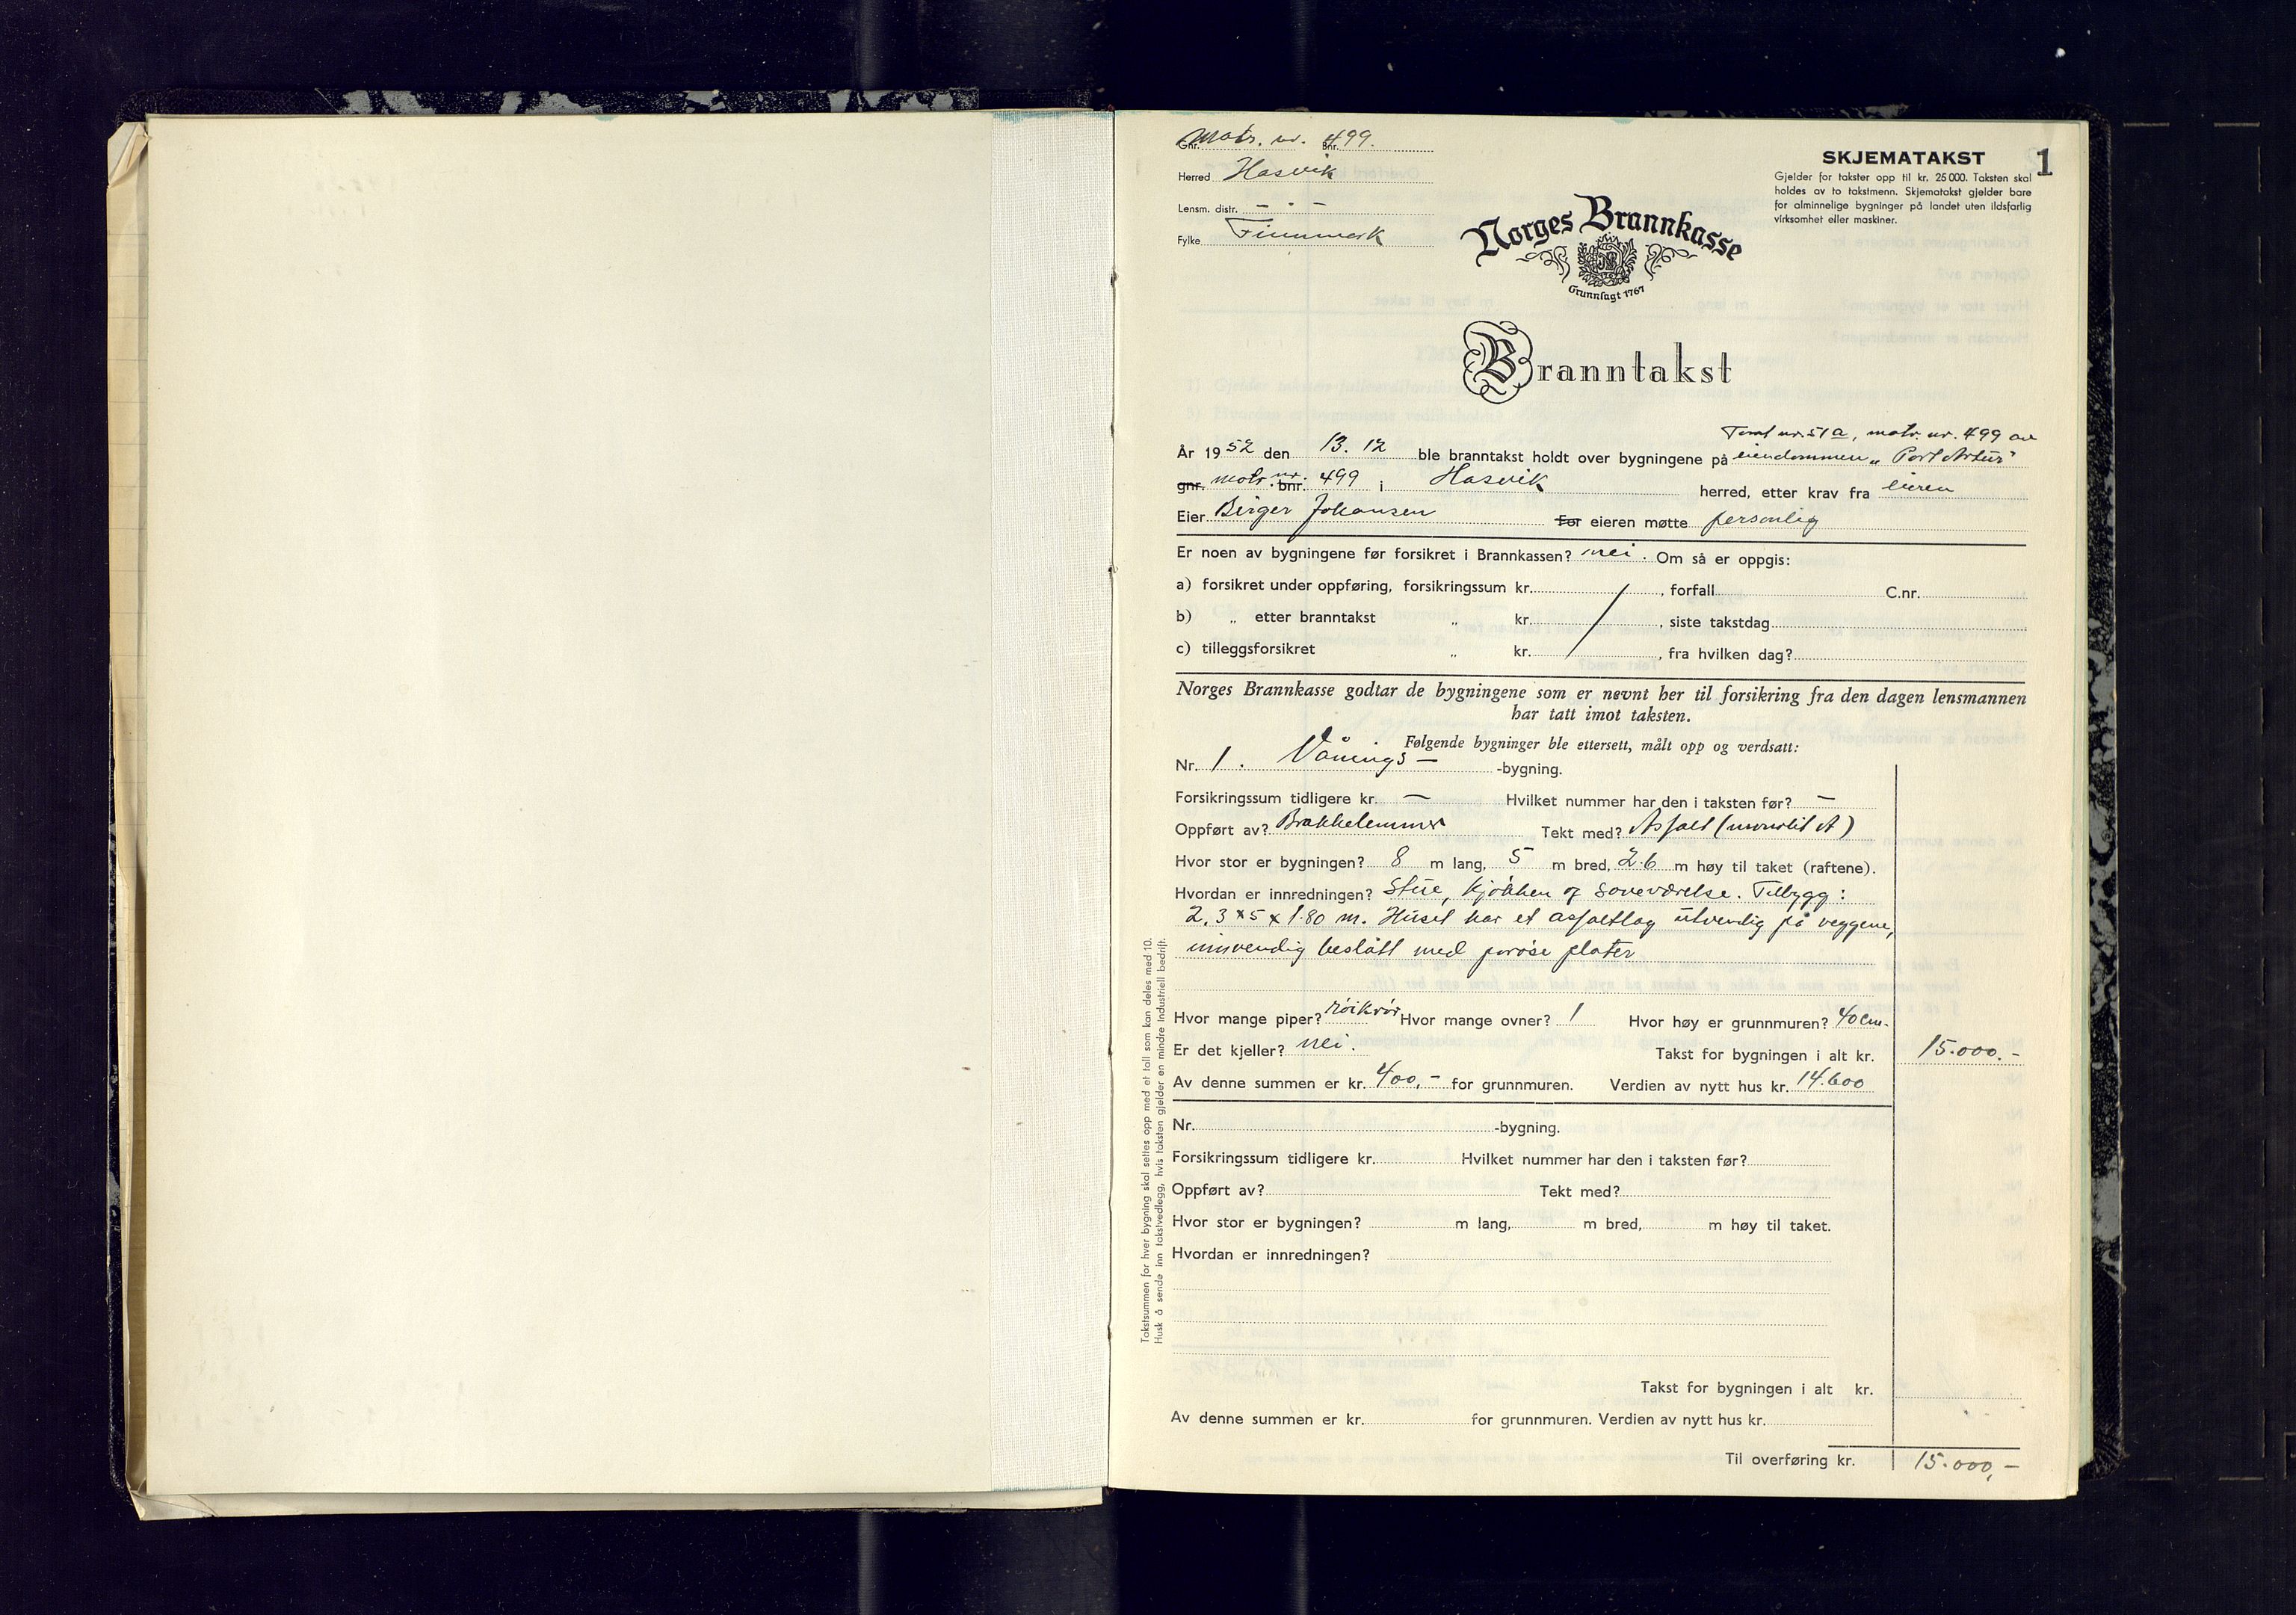 Gnr. Matr. nr. Bnr. 499.
Herred Hasvik
Lensm. distr. — " —
Fylke Finnmark
SKJEMATAKST 1
Gjelder for takster opp til kr. 25 000. Taksten skal
holdes av to takstmenn. Skjematakst gjelder bare
for alminnelige bygninger på landet uten ildsfarlig
virksomhet eller maskiner.
Norges Brannkasse
Grunnlagt 1767
Branntakst
Tomt nr. 51a, matr. nr. 499 av
År 1952 den 13. 12 ble branntakst holdt over bygningene på eiendommen „Port Artur"
gnr. matr. nr. bnr. 499 i Hasvik herred, etter krav fra eieren
Eier Birger Johansen For eieren møtte personlig
Er noen av bygningene før forsikret i Brannkassen? nei. Om så er oppgis:
a) forsikret under oppføring, forsikringssum kr. , forfall C.nr.
b) „ etter branntakst „ kr. , siste takstdag
c) tilleggsforsikret „ kr. , fra hvilken dag?
Norges Brannkasse godtar de bygningene som er nevnt her til forsikring fra den dagen lensmannen
har tatt imot taksten.
Følgende bygninger ble ettersett, målt opp og verdsatt:
Nr. 1. Vånings- -bygning.
Forsikringssum tidligere kr. — Hvilket nummer har den i taksten før? —
Oppført av? Brakkelemmer Tekt med? Asfalt (
Hvor stor er bygningen? 8 m lang, 5 m bred, 2.6 m høy til taket (raftene).
Hvordan er innredningen? Stue, kjøkken og soveværelse. Tilbygg:
2.3 x 5 x 1.80 m. Huset har et asfaltlag utvendig på veggene,
innvendig beslått med porøse plater
Hvor mange piper? røikrør Hvor mange ovner? 1 Hvor høy er grunnmuren? 40 cm.
Er det kjeller? nei. Takst for bygningen i alt kr. 15.000.-
Av denne summen er kr. 400,- for grunnmuren. Verdien av nytt hus kr. 14.600
Nr. -bygning.
Forsikringssum tidligere kr. Hvilket nummer har den i taksten før?
Oppført av? Tekt med?
Hvor stor er bygningen? m lang, m bred, m høy til taket.
Hvordan er innredningen?
Takst for bygningen i alt kr.
Av denne summen er kr. for grunnmuren. Verdien av nytt hus kr.
Til overføring kr. 15.000,-
Takstsummen for hver bygning skal settes opp med et tall som kan deles med 10.
Husk å sende inn takstvedlegg, hvis taksten gjelder en mindre industriell bedrift.